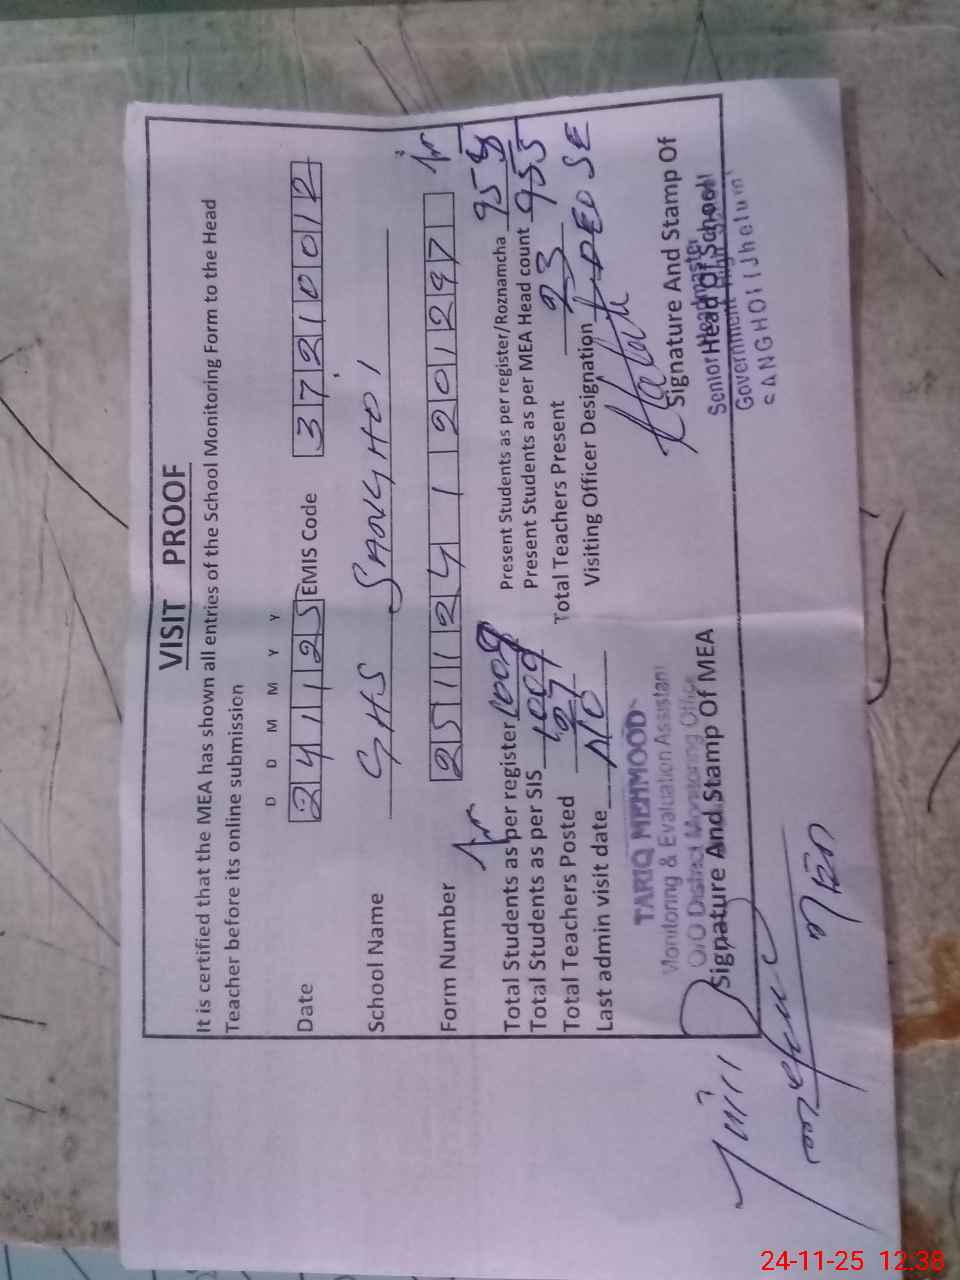 VISIT PROOF
It is certified that the MEA has shown all entries of the School Monitoring Form to the Head
Teacher before its online submission
D D M M Y Y
Date 241125 EMIS Code 37210012
School Name GHS SANGHOI
Form Number 2511241201297
Total Students as per register 1009 Present Students as per register/Roznamcha 955
Total Students as per SIS 1009 Present Students as per MEA Head count 955
Total Teachers Posted 27 Total Teachers Present 23
Last admin visit date Visiting Officer Designation DEO SE
TARIQ MEHMOOD
Monitoring & Evaluation Assistant
O/O District Monitoring Office
Signature And Stamp Of MEA
Signature And Stamp Of
Head Of School
Senior Headmaster
Government High School
SANGHOI (Jhelum)
24-11-25 12:38